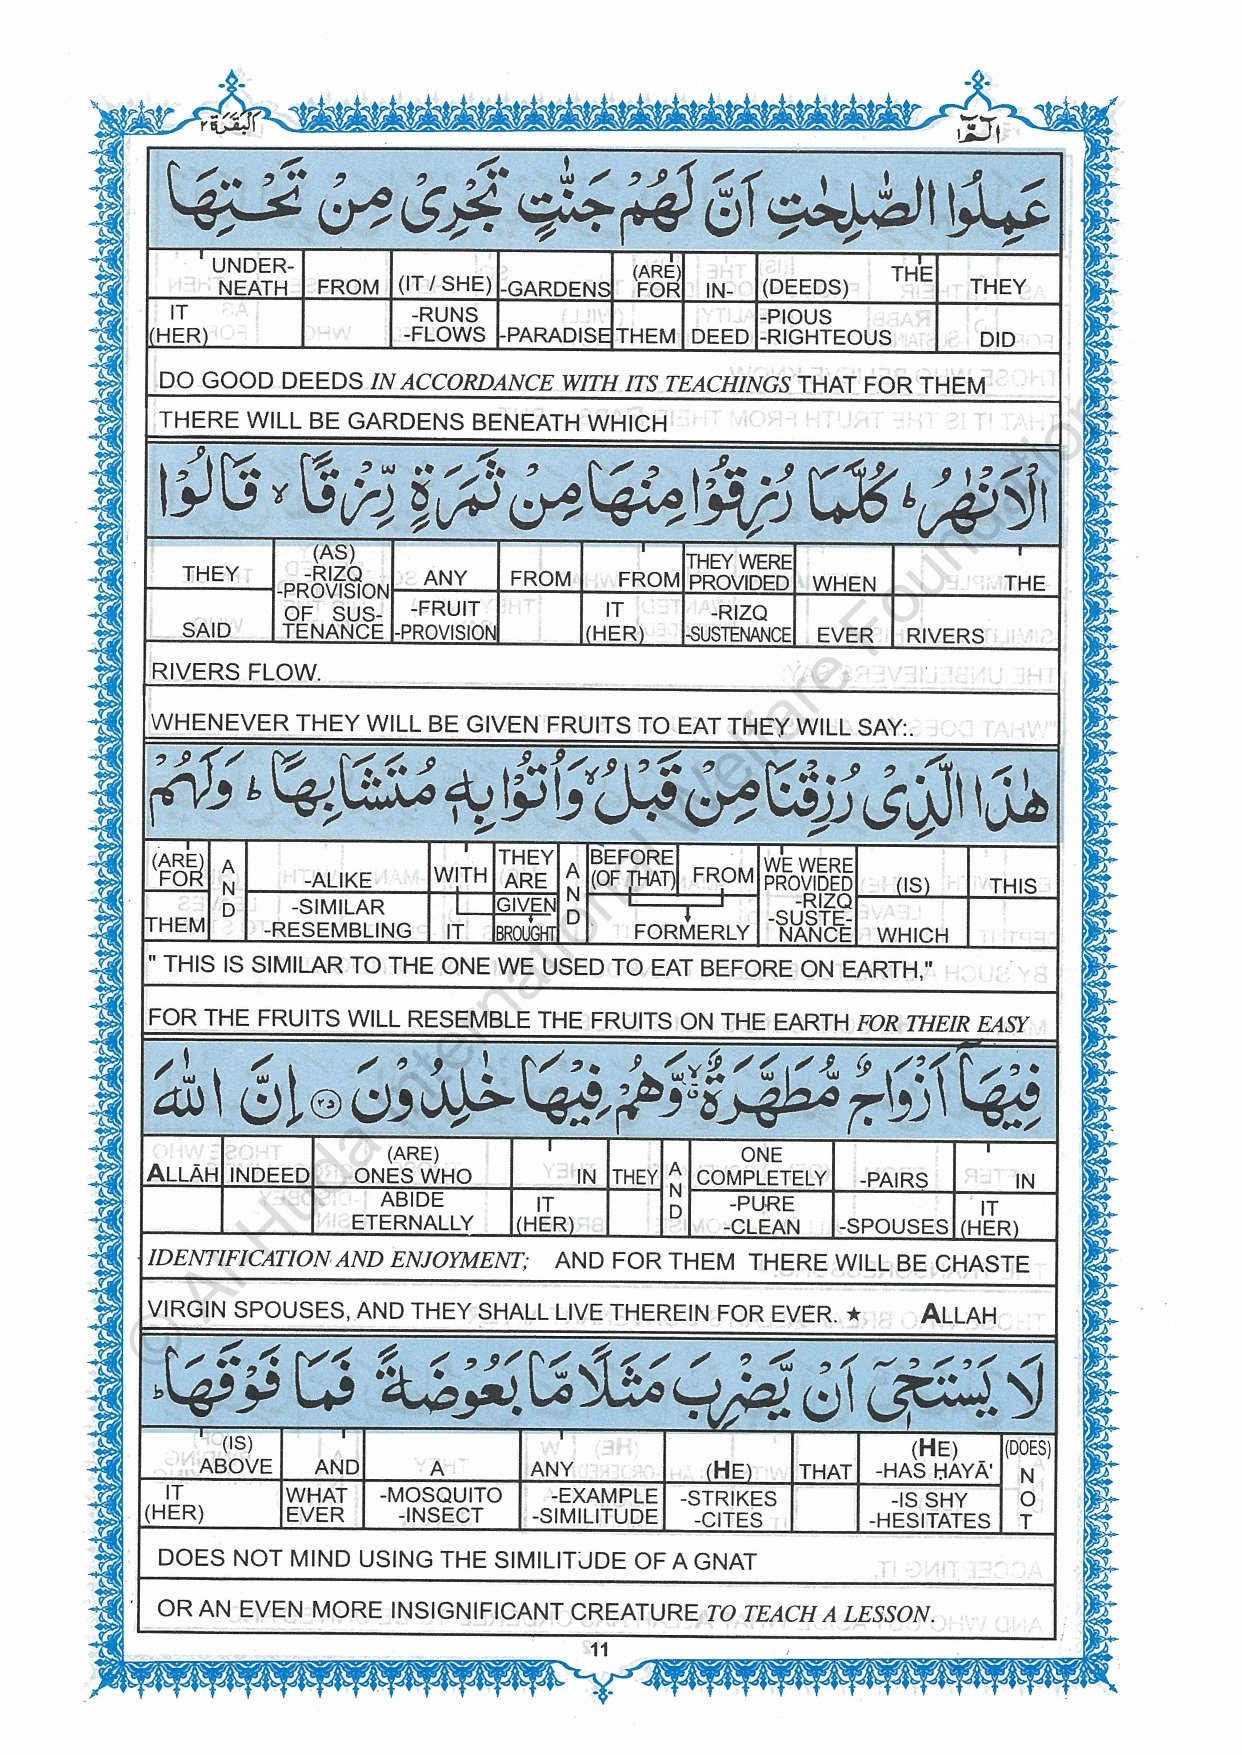 البقرة ٢
الٓمّٓ ١
عَمِلُوا الصّٰلِحٰتِ اَنَّ لَهُمْ جَنّٰتٍ تَجْرِیْ مِنْ تَحْتِهَا
UNDER-NEATH FROM (IT / SHE) -GARDENS (ARE) FOR IN- (DEEDS) THE THEY
IT (HER) -RUNS -FLOWS -PARADISE THEM DEED -PIOUS -RIGHTEOUS DID
DO GOOD DEEDS IN ACCORDANCE WITH ITS TEACHINGS THAT FOR THEM
THERE WILL BE GARDENS BENEATH WHICH
الْاَنْهٰرُ ؕ كُلَّمَا رُزِقُوْا مِنْهَا مِنْ ثَمَرَةٍ رِّزْقًا ۙ قَالُوْا
THEY (AS) -RIZQ -PROVISION ANY FROM FROM THEY WERE PROVIDED WHEN THE
SAID OF SUS-TENANCE -FRUIT -PROVISION IT (HER) -RIZQ -SUSTENANCE EVER RIVERS
RIVERS FLOW.
WHENEVER THEY WILL BE GIVEN FRUITS TO EAT THEY WILL SAY:.
هٰذَا الَّذِیْ رُزِقْنَا مِنْ قَبْلُ ۙ وَاُتُوْا بِهٖ مُتَشَابِهًا ؕ وَلَهُمْ
(ARE) FOR AND -ALIKE WITH THEY ARE AND BEFORE (OF THAT) FROM WE WERE PROVIDED (IS) THIS
THEM -SIMILAR -RESEMBLING IT GIVEN BROUGHT FORMERLY -RIZQ -SUSTE-NANCE WHICH
" THIS IS SIMILAR TO THE ONE WE USED TO EAT BEFORE ON EARTH,"
FOR THE FRUITS WILL RESEMBLE THE FRUITS ON THE EARTH FOR THEIR EASY
فِیْهَاۤ اَزْوَاجٌ مُّطَهَّرَةٌ ۙ وَّهُمْ فِیْهَا خٰلِدُوْنَ ﴿۲۵﴾ اِنَّ اللّٰهَ
ALLĀH INDEED (ARE) ONES WHO IN THEY AND ONE COMPLETELY -PAIRS IN
ABIDE ETERNALLY IT (HER) -PURE -CLEAN -SPOUSES IT (HER)
IDENTIFICATION AND ENJOYMENT; AND FOR THEM THERE WILL BE CHASTE
VIRGIN SPOUSES, AND THEY SHALL LIVE THEREIN FOR EVER. ★ ALLAH
لَا یَسْتَحْیٖۤ اَنْ یَّضْرِبَ مَثَلًا مَّا بَعُوْضَةً فَمَا فَوْقَهَا ؕ
(IS) ABOVE AND A ANY (HE) THAT (HE) -HAS ḤAYĀ' (DOES) NOT
IT (HER) WHAT EVER -MOSQUITO -INSECT -EXAMPLE -SIMILITUDE -STRIKES -CITES -IS SHY -HESITATES
DOES NOT MIND USING THE SIMILITUDE OF A GNAT
OR AN EVEN MORE INSIGNIFICANT CREATURE TO TEACH A LESSON.
11
© Al Huda International Welfare Foundation